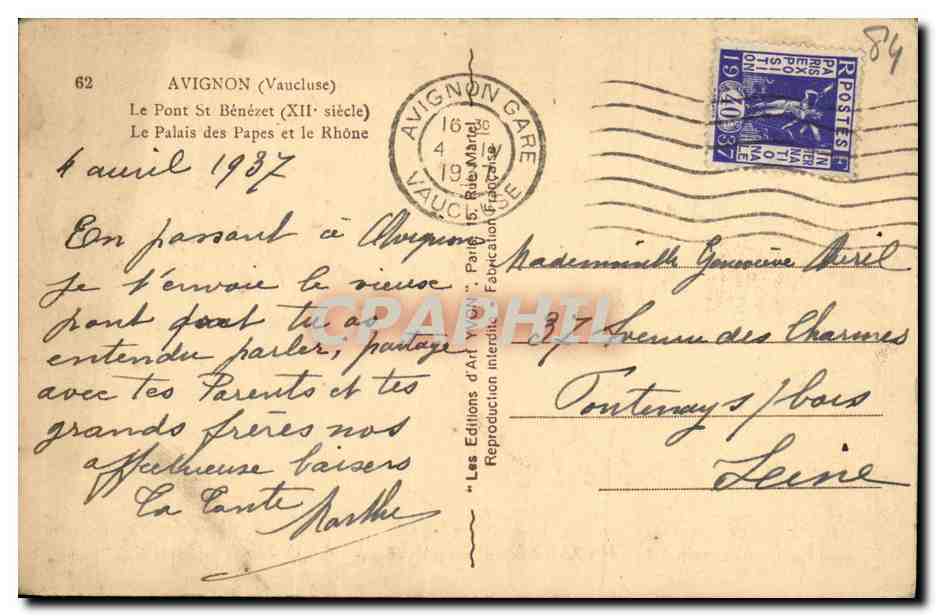 62 AVIGNON (Vaucluse)
Le Pont St Bénézet (XIIe siècle)
Le Palais des Papes et le Rhône
4 avril 1937
En passant à Avignon
je t'envoie le vieux
pont dont tu as
entendu parler, partage
avec tes Parents et tes
grands frères nos
affectueuse baisers
Ta Tante Marthe
"Les Editions d'Art YVON". Paris, 15, Rue Martel
Reproduction interdite. Fabrication Française
AVIGNON GARE
16 30
4 IV
1937
VAUCLUSE
RF POSTES
EXPOSITION
INTERNATIONALE
PARIS
1937
40
84
Mademoiselle Geneviève Avril
37 Avenue des Charmes
Fontenay s/bois
Seine
CPAPHIL